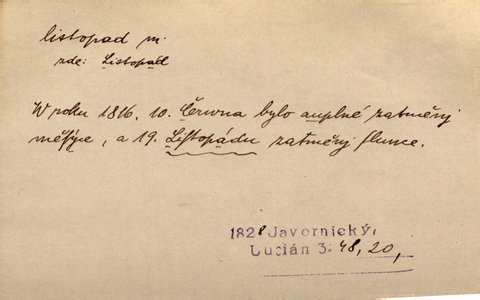 listopad m.
zde: Listopad
W roku 1816. 10. Června bylo auplné zatměný
měsýce, a 19. Listopádu zatměný slunce.
1828 Javornický,
Lucián 3: 48, 20,